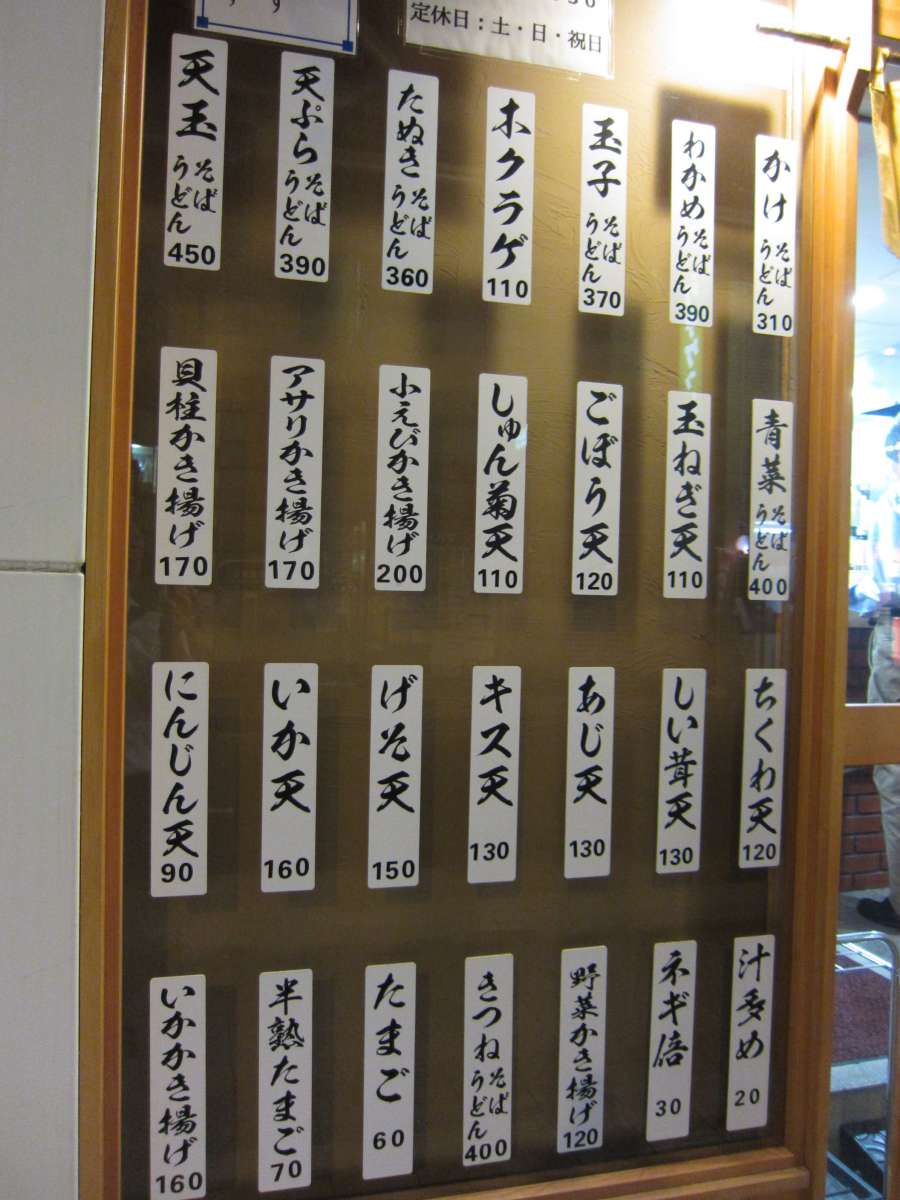 定休日：土・日・祝日
かけ
そば
うどん
310
わかめ
そば
うどん
390
玉子
そば
うどん
370
木クラゲ
110
たぬき
そば
うどん
360
天ぷら
そば
うどん
390
天玉
そば
うどん
450
青菜
そば
うどん
400
玉ねぎ天
110
ごぼう天
120
しゅん菊天
110
小えびかき揚げ
200
アサリかき揚げ
170
貝柱かき揚げ
170
ちくわ天
120
しい茸天
130
あじ天
130
キス天
130
げそ天
150
いか天
160
にんじん天
90
汁多め
20
ネギ倍
30
野菜かき揚げ
120
きつね
そば
うどん
400
たまご
60
半熟たまご
70
いかかき揚げ
160